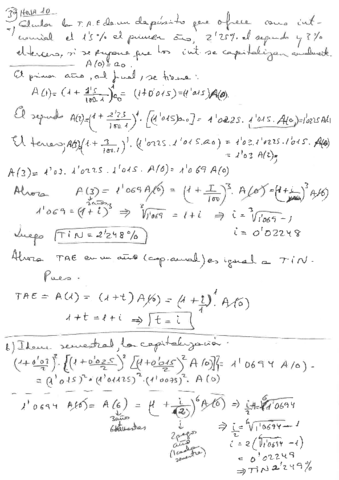 Hoja 10
Calcular la T.A.E de un depósito que ofrece como int.
nominal el 1'5% el primer año, 2'25% el segundo y 3%
el tercero, si se supone que los int se capitalizan anualmente
A(0)=a₀
El primer año, al final, se tiene:
A(1) = (1 + 1'5/100·1)¹ a₀ = (1+0'015) = (1'015) A(0)
El segundo A(2) = (1 + 2'25/100·1)¹ · [(1'015)a₀] = 1'0225 · 1'015 · A(0)
El tercero, A(3) = (1 + 3/100·1)¹ · (1'0225·1'015·a₀) = 1'03·1'0225·1'015·A(0)
= 1'03 A(2);
A(3) = 1'03 · 1'0225 · 1'015 · A(0) = 1'069 A(0)
Ahora A(3) = 1'069 A(0) = (1 + I/100)³ · A(0) = (1+i)³ A(0)
1'069 = (1+i)³ ⇒ ³√1'069 = 1+i ⇒ i = ³√1'069 - 1
Luego TiN = 2'248% i = 0'02248
Ahora TAE en un año (cap. anual) es igual a TiN.
Pues
TAE = A(1) = (1+t) A(0) = (1 + i/1)¹ · A(0)
1+t = 1+i ⇒ t = i
b) Idem semestral, la capitalización.
(1+0'03/2)² · [(1+0'0225/2)² [(1+0'015/2)² A(0)]] = 1'0694 A(0) =
= (1'015)² · (1'01125)² · (1'0075)² · A(0)
1'0694 A(0) = A(6) = (1 + i/2)⁶ A(0) ⇒ 1 + i/2 = ⁶√1'0694
i/2 = ⁶√1'0694 - 1
i = 2(⁶√1'0694 - 1)
= 0'02249
⇒ TiN 2'249%